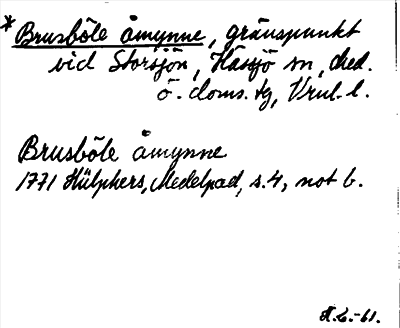 *Brusböle åmynne, gränspunkt
vid Storsjön, Hässjö sn, Med.
ö. doms. tg, Vrnl. l.
Brusböle åmynne
1771 Hülphers, Medelpad, s. 4, not b.
-61.